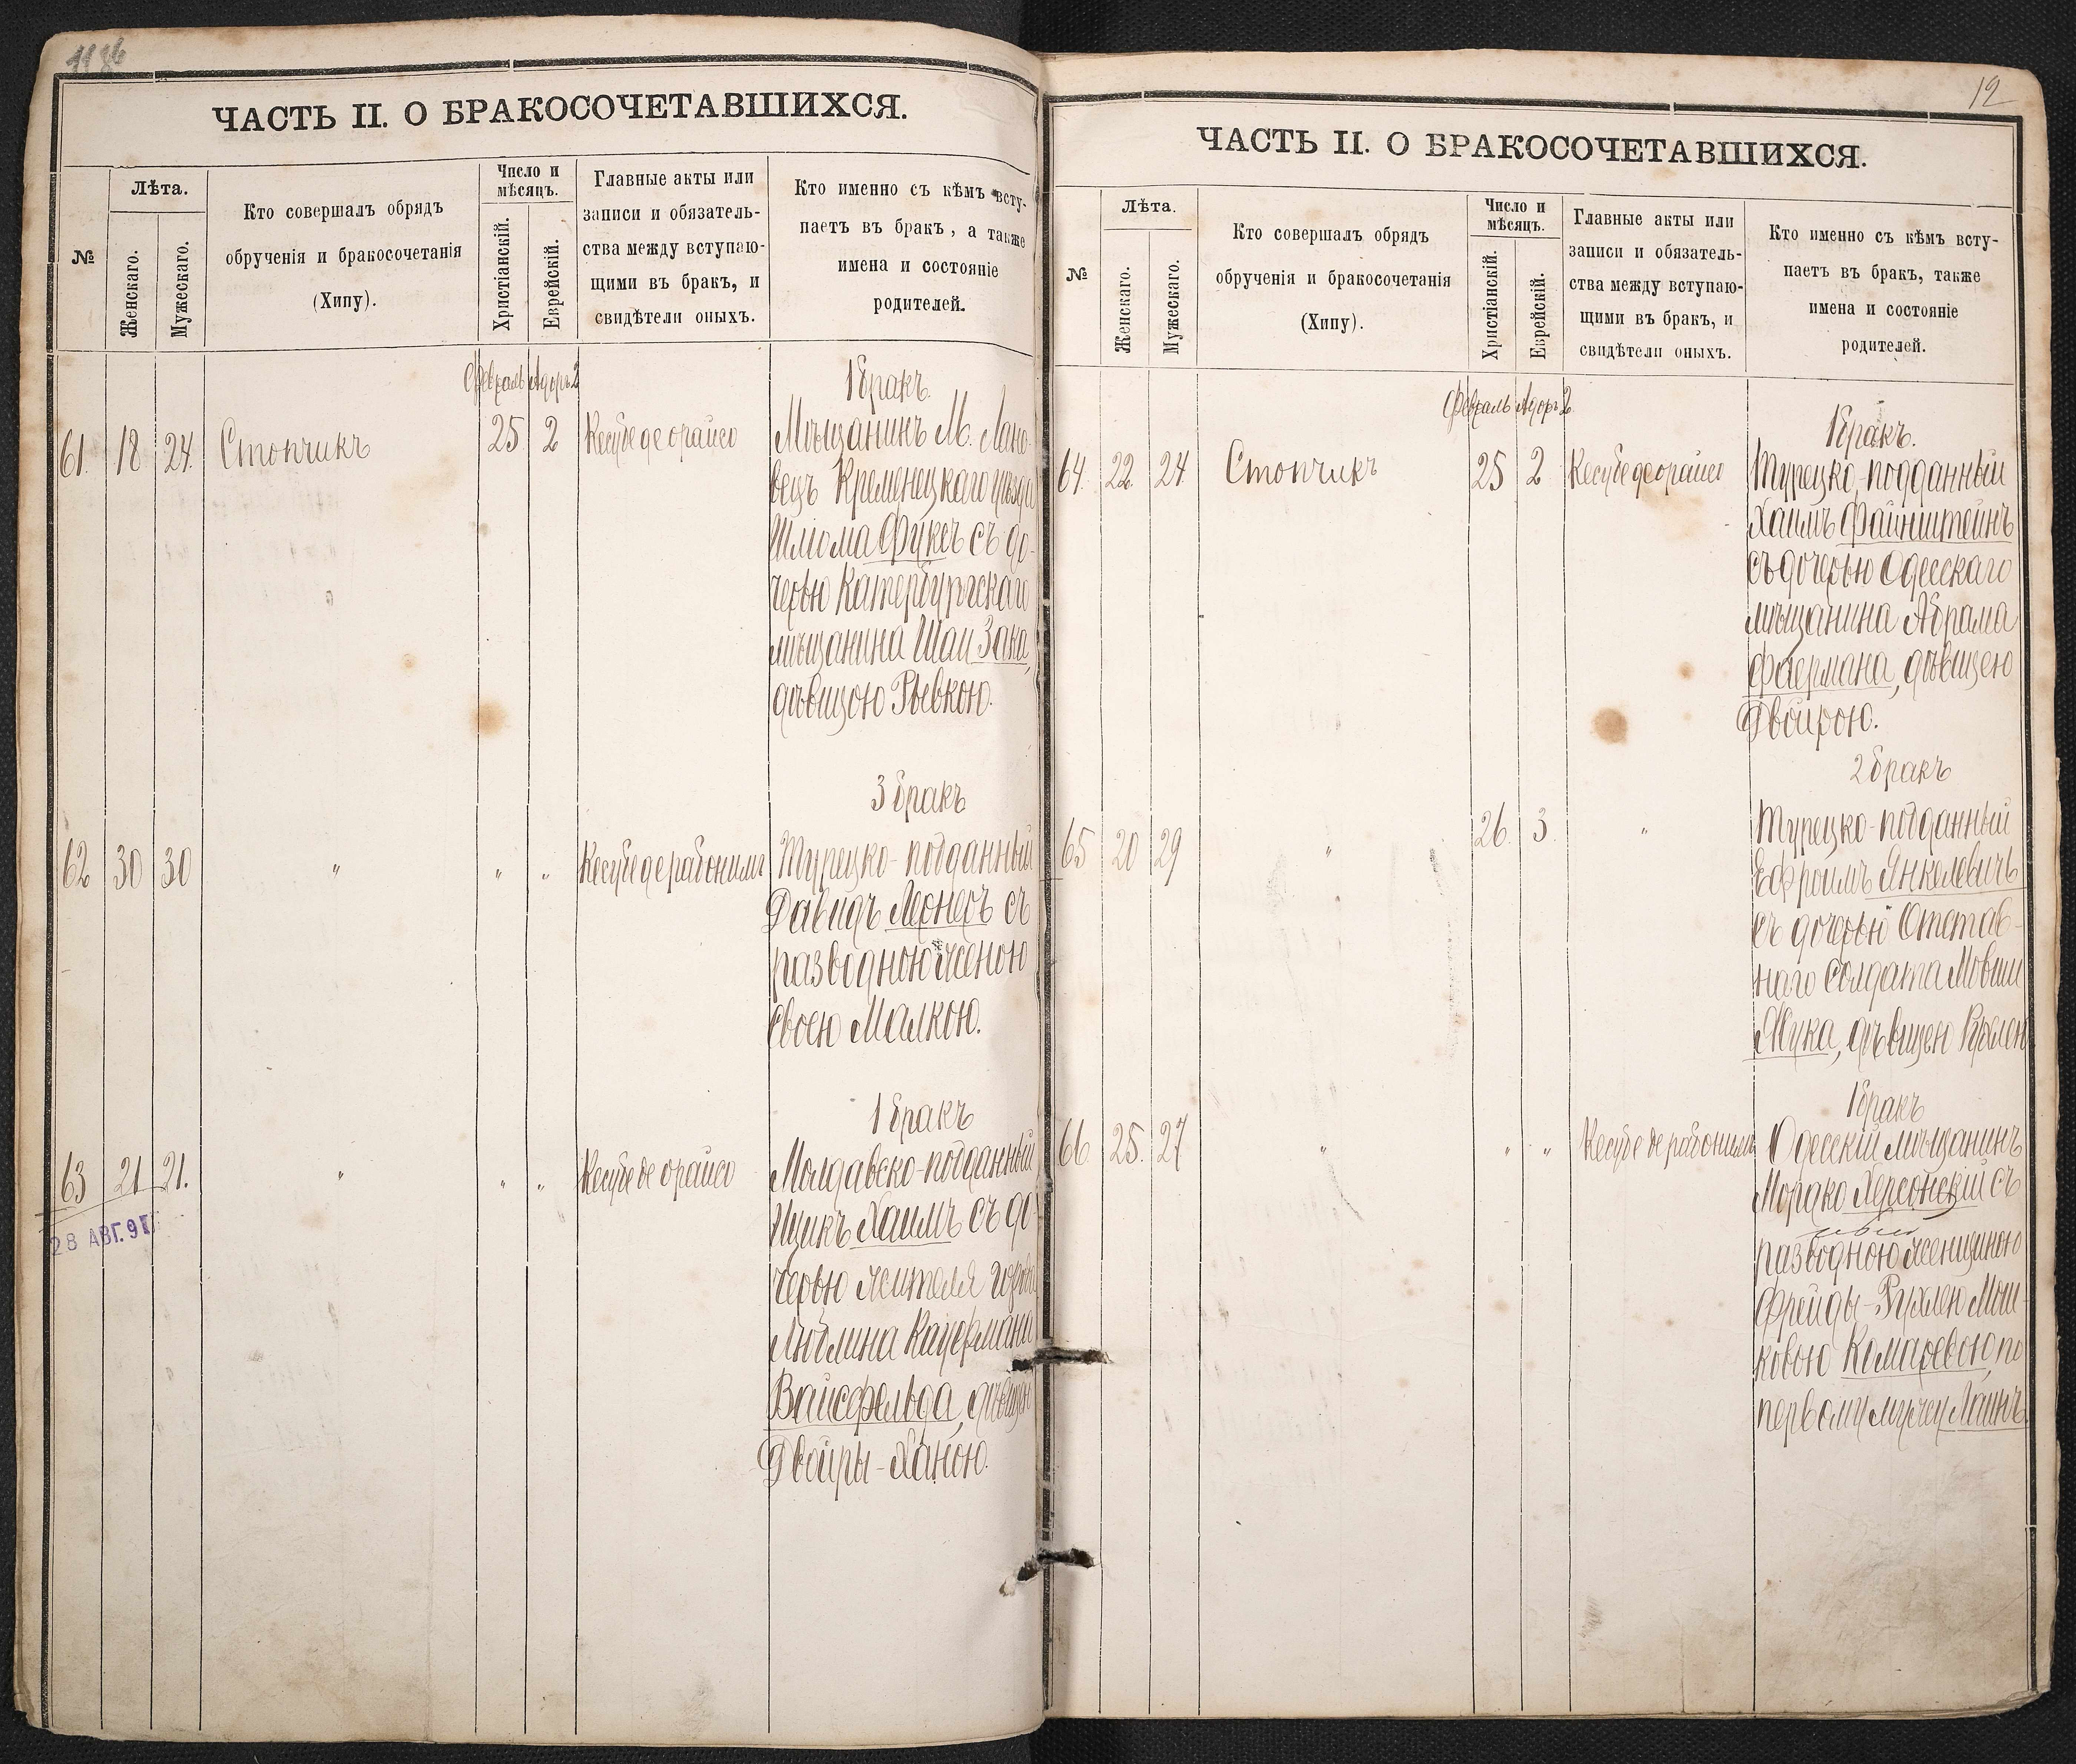 ЧАСТЬ II. О БРАКОСОЧЕТАВШИХСЯ.
№
Лѣта.
Женскаго.
Мужескаго.
Кто совершалъ обрядъ
обрученія и бракосочетанія
(Хипу).
Число и
мѣсяцъ.
Христіанскій.
Еврейскій.
Главные акты или
записи и обязатель-
ства между вступаю-
щими въ бракъ, и
свидѣтели оныхъ.
Кто именно съ кѣмъ всту-
паетъ въ бракъ, а также
имена и состояніе
родителей.
Февраль Адоръ 2
1 бракъ.
61. 18 24. Стопчикъ 25 2 Кесубе де орайсо Мѣщанинъ М. Лано-
вецъ Кременецкаго уѣзда
Шліома Фуксъ съ до-
черью Катербургскаго
мѣщанина Шаи Зака,
дѣвицою Рывкою.
3 бракъ
62 30 30 " " " Кесубе де рабонимъ Турецко-подданный
Давидъ Лернеръ съ
разводною женою
своею Малкою.
1 бракъ
63 21 21. " " " Кесубе де орайсо Молдавско-подданный
Ицикъ Хаимъ съ до-
черью жителя города
Люблина
Вайсфельда, дѣвицею
Двойры-Ханою.
28 АВГ. 91
12
ЧАСТЬ II. О БРАКОСОЧЕТАВШИХСЯ.
№
Лѣта.
Женскаго.
Мужескаго.
Кто совершалъ обрядъ
обрученія и бракосочетанія
(Хипу).
Число и
мѣсяцъ.
Христіанскій.
Еврейскій.
Главные акты или
записи и обязатель-
ства между вступаю-
щими въ бракъ, и
свидѣтели оныхъ.
Кто именно съ кѣмъ всту-
паетъ въ бракъ, также
имена и состояніе
родителей.
Февраль Адоръ 2
1 бракъ.
64. 22. 24 Стопчикъ 25 2 Кесубе де орайсо Турецко-подданный
Хаимъ Файнштейнъ
съ дочерью Одесскаго
мѣщанина Абрама
Фаермана, дѣвицею
Двойрою.
2 бракъ
65 20 29 " 26. 3. " Турецко-подданный
Ефроимъ Янкелевичъ
съ дочерью Отстав-
наго Солдата Мовши
Жука, дѣвицею Рухлею
1 бракъ
66 25. 27 " " " Кесубе де рабонимъ Одесскій мѣщанинъ
Морако Херсонскій съ
разводною женщиною
Фрейды-Рухлею Мош-
ковою Комаревою, по
первому мужу Лаинъ